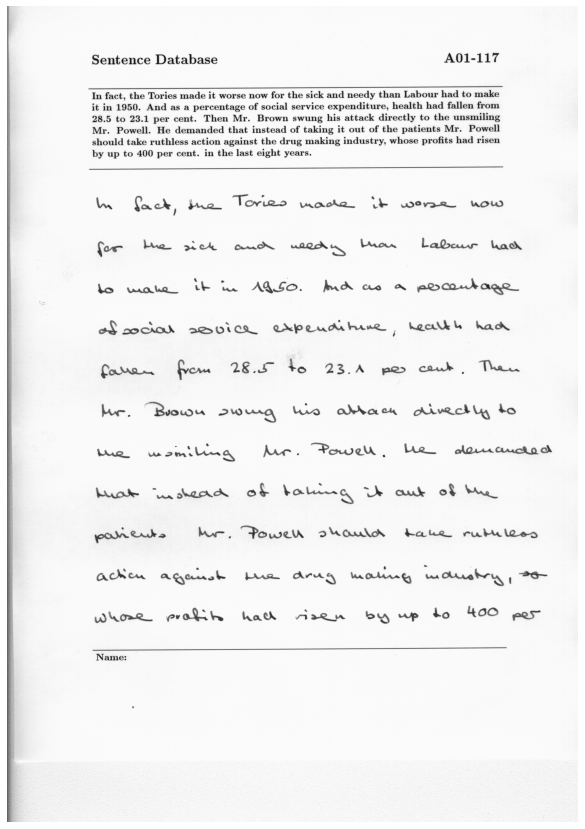 Sentence Database A01-117
In fact, the Tories made it worse now for the sick and needy than Labour had to make
it in 1950. And as a percentage of social service expenditure, health had fallen from
28.5 to 23.1 per cent. Then Mr. Brown swung his attack directly to the unsmiling
Mr. Powell. He demanded that instead of taking it out of the patients Mr. Powell
should take ruthless action against the drug making industry, whose profits had risen
by up to 400 per cent. in the last eight years.
In fact, the Tories made it worse now
for the sick and needy than Labour had
to make it in 1950. And as a percentage
of social service expenditure, health had
fallen from 28.5 to 23.1 per cent. Then
Mr. Brown swung his attack directly to
the unsmiling Mr. Powell. He demanded
that instead of taking it out of the
patients Mr. Powell should take ruthless
action against the drug making industry,
whose profits had risen by up to 400 per
Name: